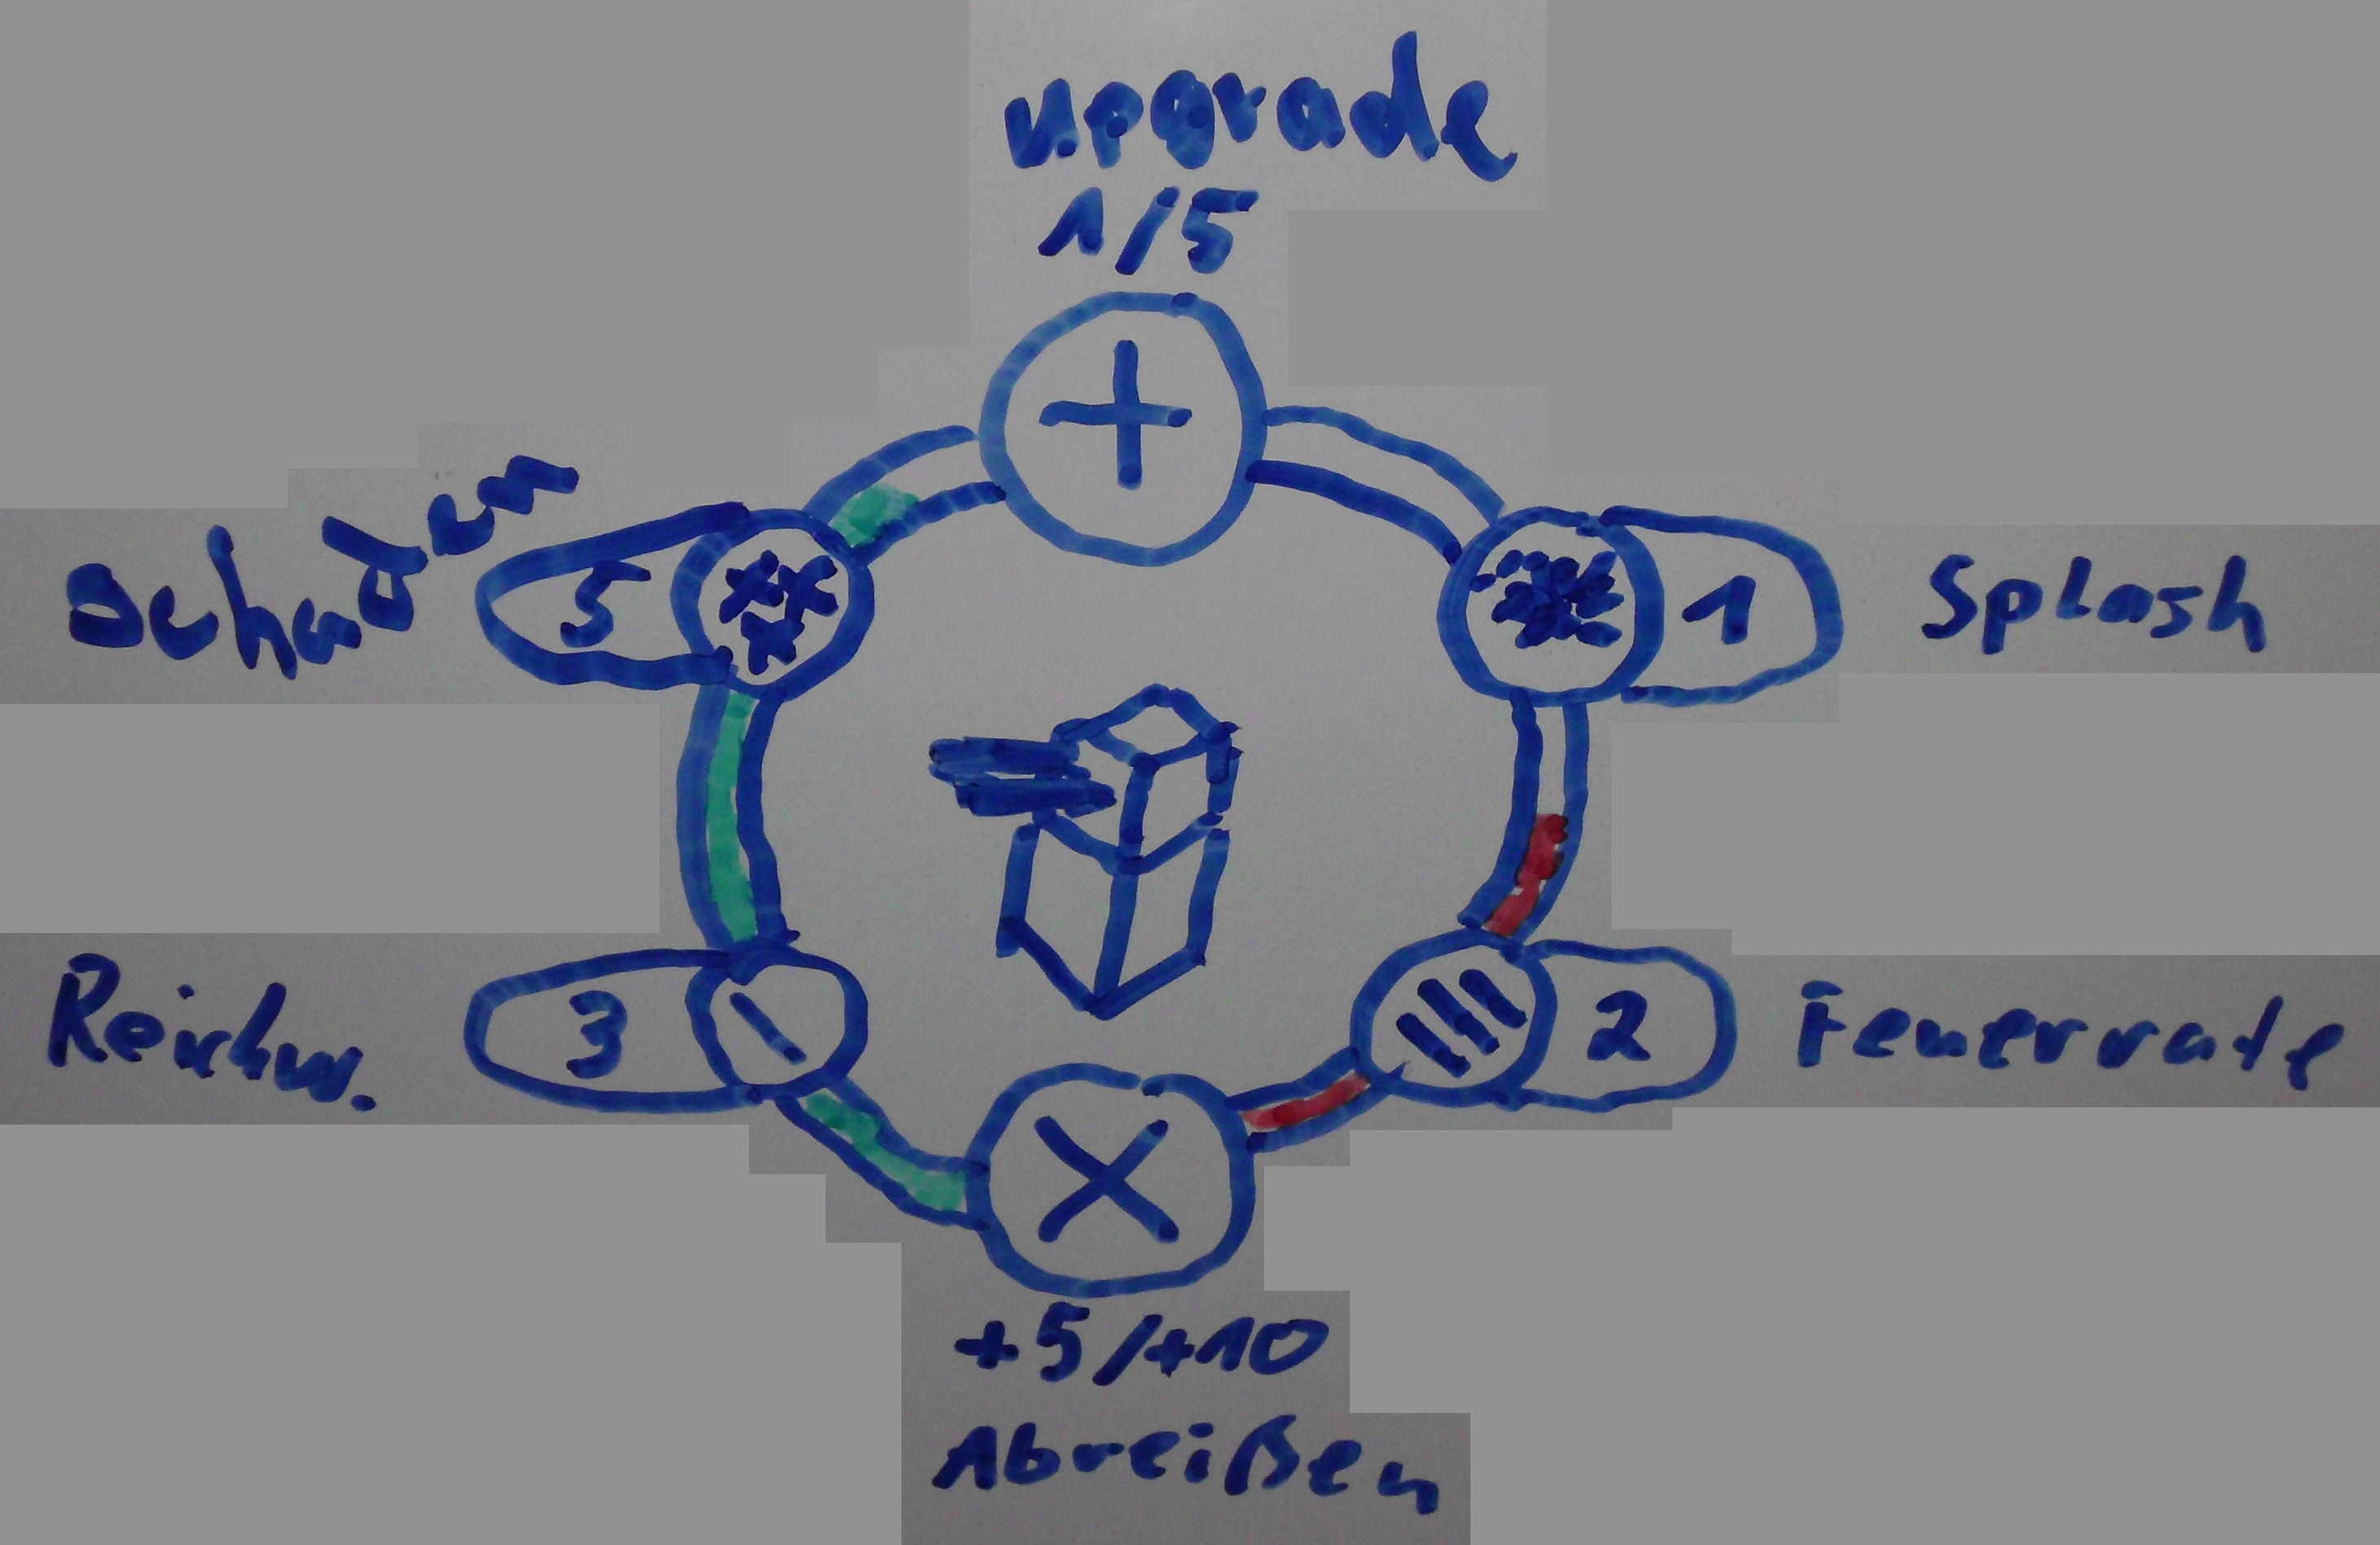 Upgrade
1/5
+
Schaden
5
1
Splash
Reichw.
3
2
Feuerrate
X
+5/+10
Abreißen